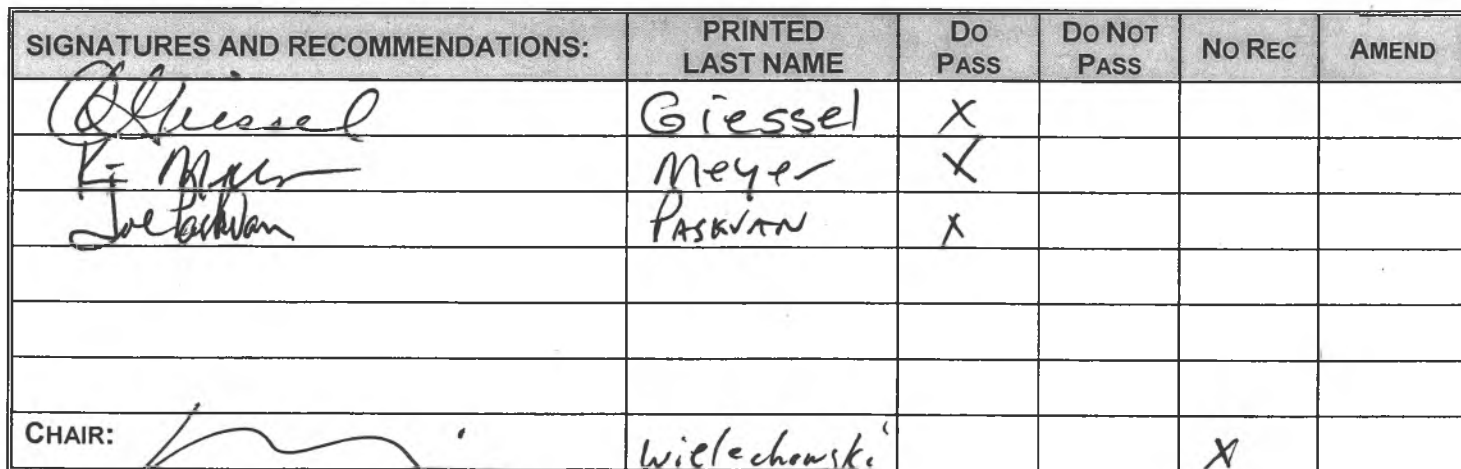 SIGNATURES AND RECOMMENDATIONS: PRINTED LAST NAME DO PASS DO NOT PASS NO REC AMEND
Giessel Giessel X
Meyer X
Joe Paskvan PASKVAN X
CHAIR: Wielechowski X